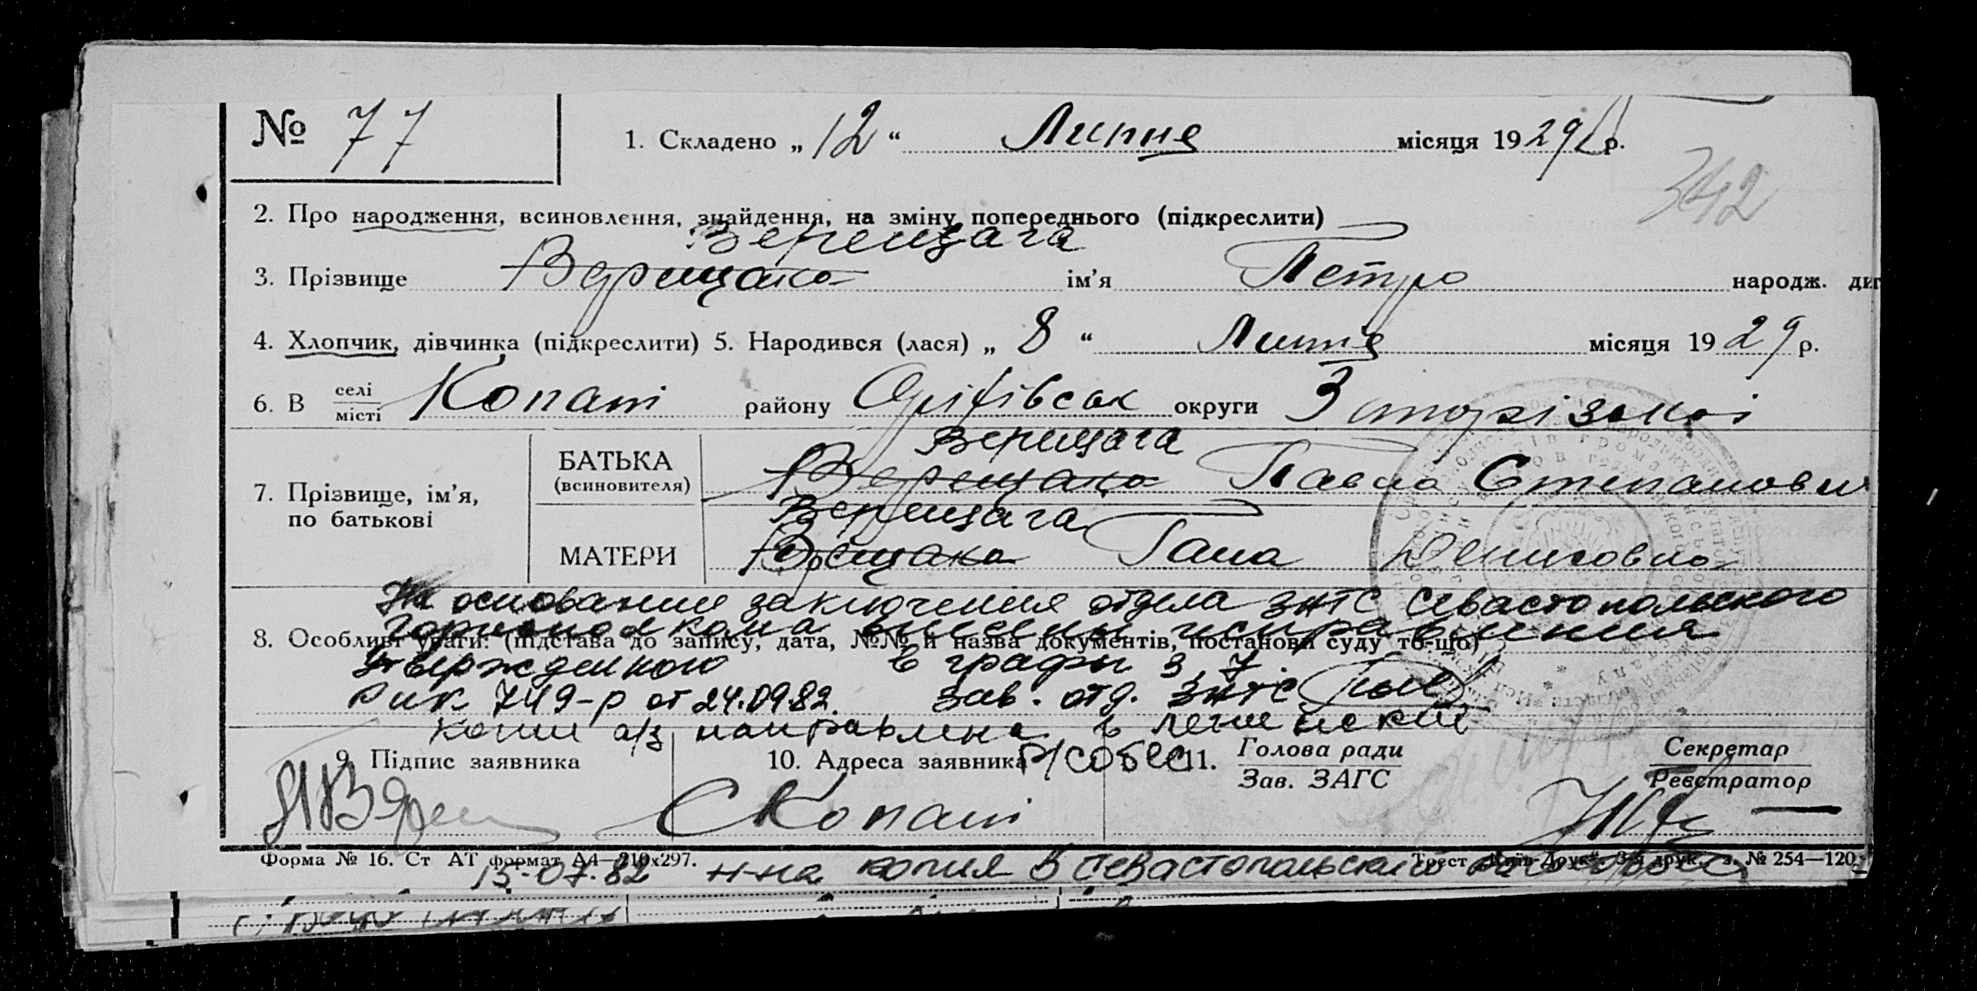 № 77
1. Складено „ 12 “ Липня місяця 1929 р.
342
2. Про народження, всиновлення, знайдення, на зміну попереднього (підкреслити)
Верещага
3. Прізвище Верещако ім'я Петро народж. дит
4. Хлопчик, дівчинка (підкреслити) 5. Народився (лася) „ 8 “ Липня місяця 1929 р.
6. В селі місті Копані району Оріхівськ округи Запорізької
Верещага
7. Прізвище, ім'я, по батькові БАТЬКА (всиновителя) Верещако Павло Степанови
Верещага
МАТЕРИ Верещака Гана Денисовна
На основании заключения отдела ЗАГС Севастопольского
горисполкома внесены исправления
8. Особливі уваги: (підстава до запису, дата, №№ й назва документів, постанови суду то-що)
Утвержденного в графы 3, 7.
РИК 749-р от 24.09.82. Зав. отд. ЗАГС
копия а/з направлена в Ленинский
р/собес
9. Підпис заявника 10. Адреса заявника 11. Голова ради Зав. ЗАГС Секретар Реєстратор
С Копані
Форма № 16. Ст АТ формат А4—210х297. Трест „Київ-Друк“. 3-я друк. з. № 254—120
15.07.82 н-на копия В Севастопольский